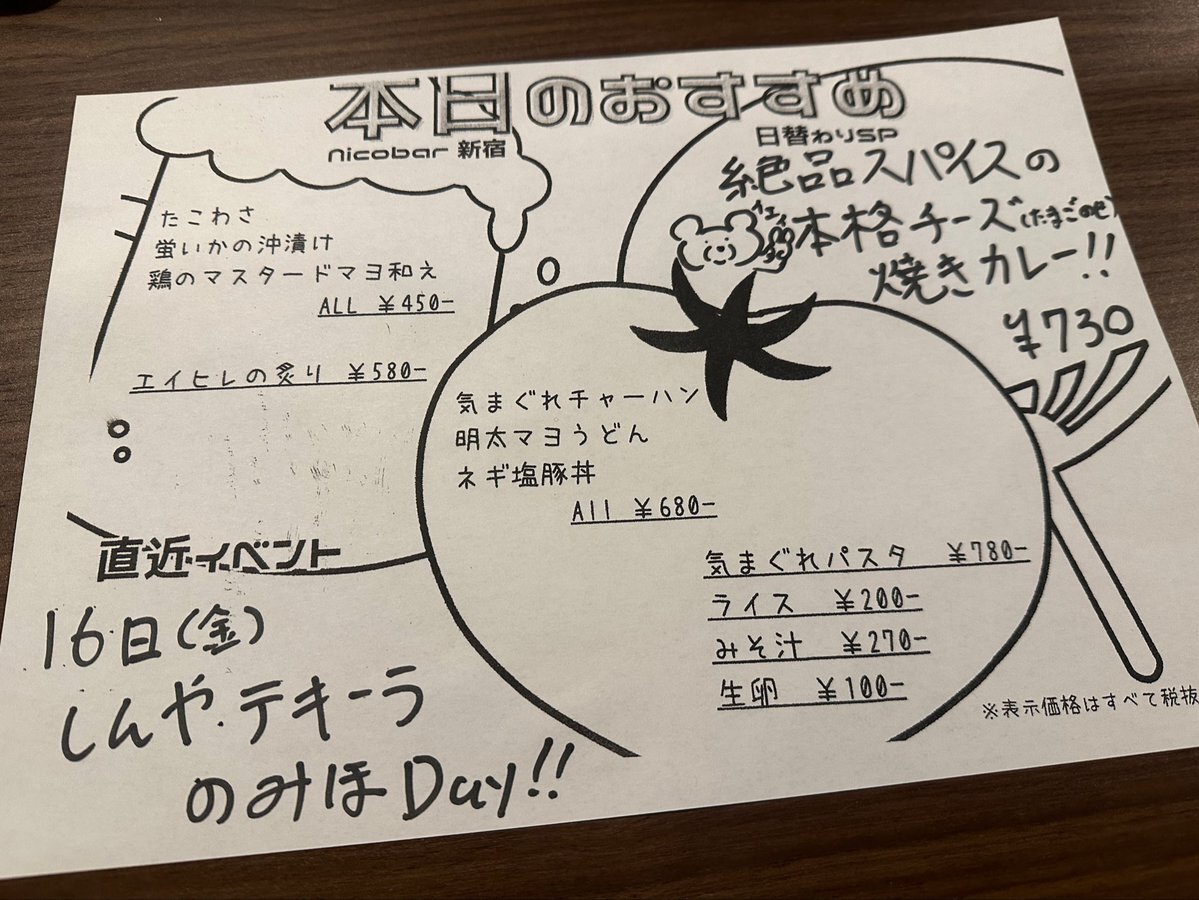 本日のおすすめ
nicobar 新宿
日替わりSP
絶品スパイスの
本格チーズ(たまごのせ)
焼きカレー!!
¥730
たこわさ
蛍いかの沖漬け
鶏のマスタードマヨ和え
ALL ¥450-
エイヒレの炙り ¥580-
気まぐれチャーハン
明太マヨうどん
ネギ塩豚丼
All ¥680-
気まぐれパスタ ¥780-
ライス ¥200-
みそ汁 ¥270-
生卵 ¥100-
※表示価格はすべて税抜
直近イベント
16日(金)
しんや.テキーラ
のみほDay!!